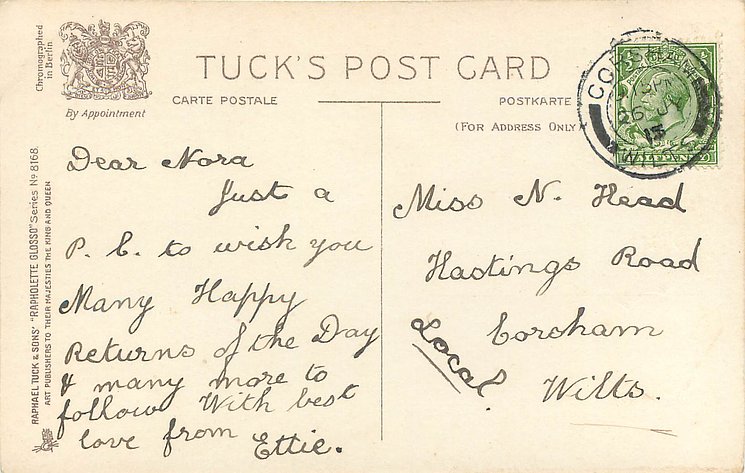 Chromographed
in Berlin
By Appointment
TUCK'S POST CARD
CARTE POSTALE
POSTKARTE
(FOR ADDRESS ONLY)
RAPHAEL TUCK & SONS' "RAPHOLETTE GLOSSO" Series No 8168.
ART PUBLISHERS TO THEIR MAJESTIES THE KING AND QUEEN
Dear Nora
Just a
P. C. to wish you
Many Happy
Returns of the Day
& many more to
follow With best
love from Ettie.
Miss N. Head
Hastings Road
Corsham
Local.
Wilts.
13